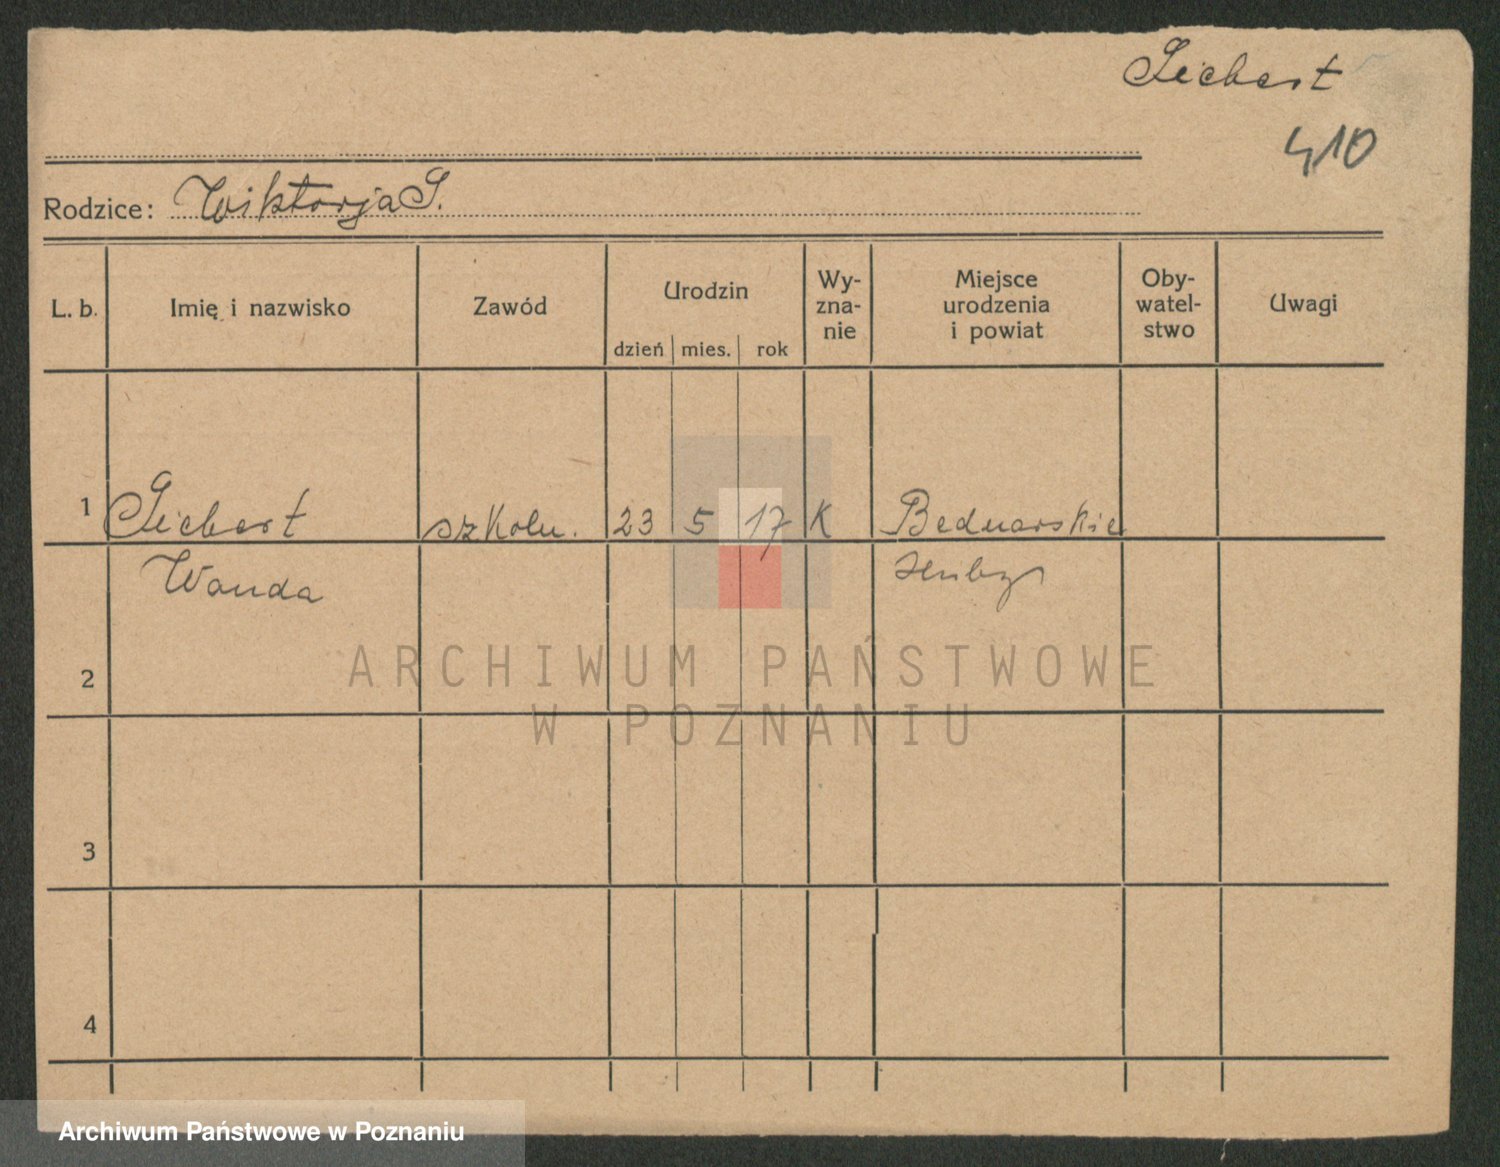 Siebert
410
Rodzice: Wiktorja S.
L. b. Imię i nazwisko Zawód Urodzin Wy-zna-nie Miejsce urodzenia i powiat Oby-watel-stwo Uwagi
dzień mies. rok
1 Siebert szkoln. 23 5 17 K Bednarskie
Wanda Huby
2
3
4
ARCHIWUM PAŃSTWOWE
W POZNANIU
Archiwum Państwowe w Poznaniu